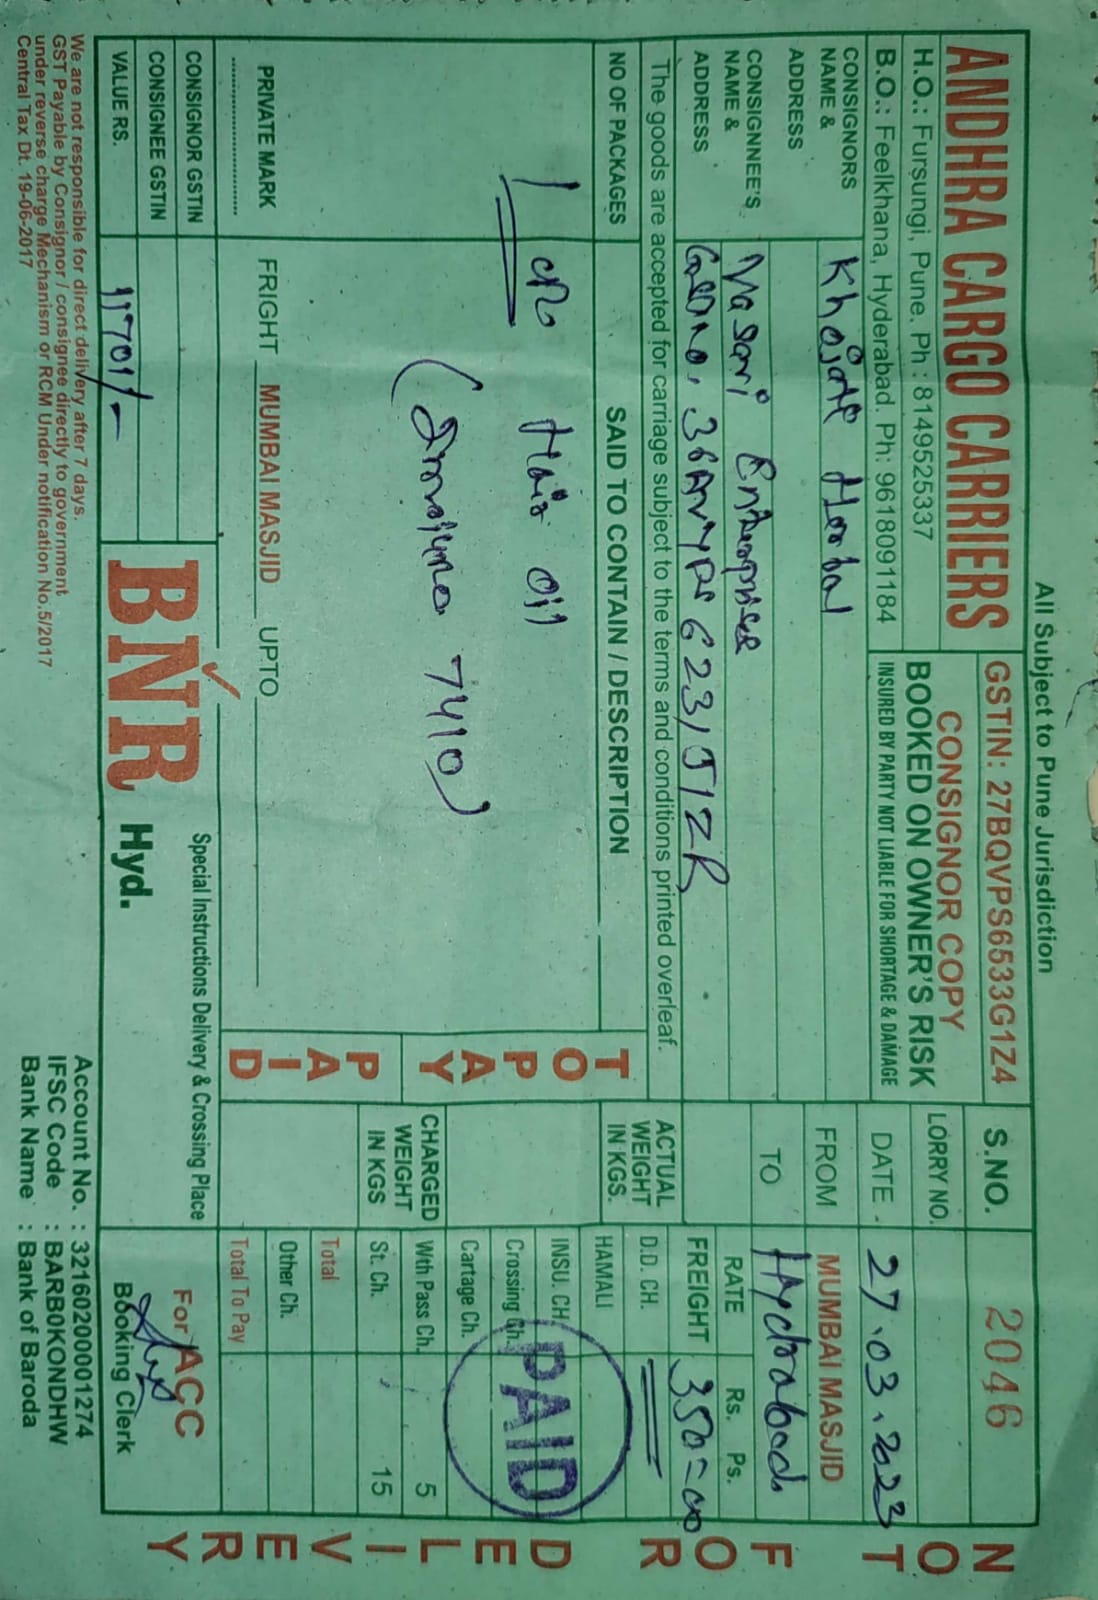 All Subject to Pune Jurisdiction
ANDHRA CARGO CARRIERS
H.O.: Fursungi, Pune. Ph : 8149525337
B.O.: Feelkhana, Hyderabad. Ph: 9618091184
GSTIN: 27BQVPS6533G1Z4
CONSIGNOR COPY
BOOKED ON OWNER'S RISK
INSURED BY PARTY NOT LIABLE FOR SHORTAGE & DAMAGE
S.NO. 2046
LORRY NO.
DATE. 27.03.2023
FROM MUMBAI MASJID
TO Hydrabad
CONSIGNORS NAME & ADDRESS
Khojati Herbal
CONSIGNNEE'S NAME & ADDRESS
Enterprise
The goods are accepted for carriage subject to the terms and conditions printed overleaf.
NO OF PACKAGES
SAID TO CONTAIN / DESCRIPTION
TO PAY
PAID
1 Hair oil
7410)
ACTUAL WEIGHT IN KGS.
CHARGED WEIGHT IN KGS
RATE Rs. Ps.
FREIGHT 350=00
D.D. CH.
HAMALI
INSU. CH.
Crossing Ch.
Cartage Ch.
Wth Pass Ch. 5
St. Ch. 15
Total
Other Ch.
Total To Pay
PAID
NOT FOR DELIVERY
PRIVATE MARK
FRIGHT MUMBAI MASJID UPTO
CONSIGNOR GSTIN
CONSIGNEE GSTIN
VALUE RS. 11701/-
BNR Hyd.
Special Instructions Delivery & Crossing Place
For ACC
Booking Clerk
We are not responsible for direct delivery after 7 days.
GST Payable by Consignor / consignee directly to government
under reverse charge Mechanism or RCM Under notification No.5/2017
Central Tax Dt. 19-06-2017
Account No. : 32160200001274
IFSC Code : BARB0KONDHW
Bank Name : Bank of Baroda